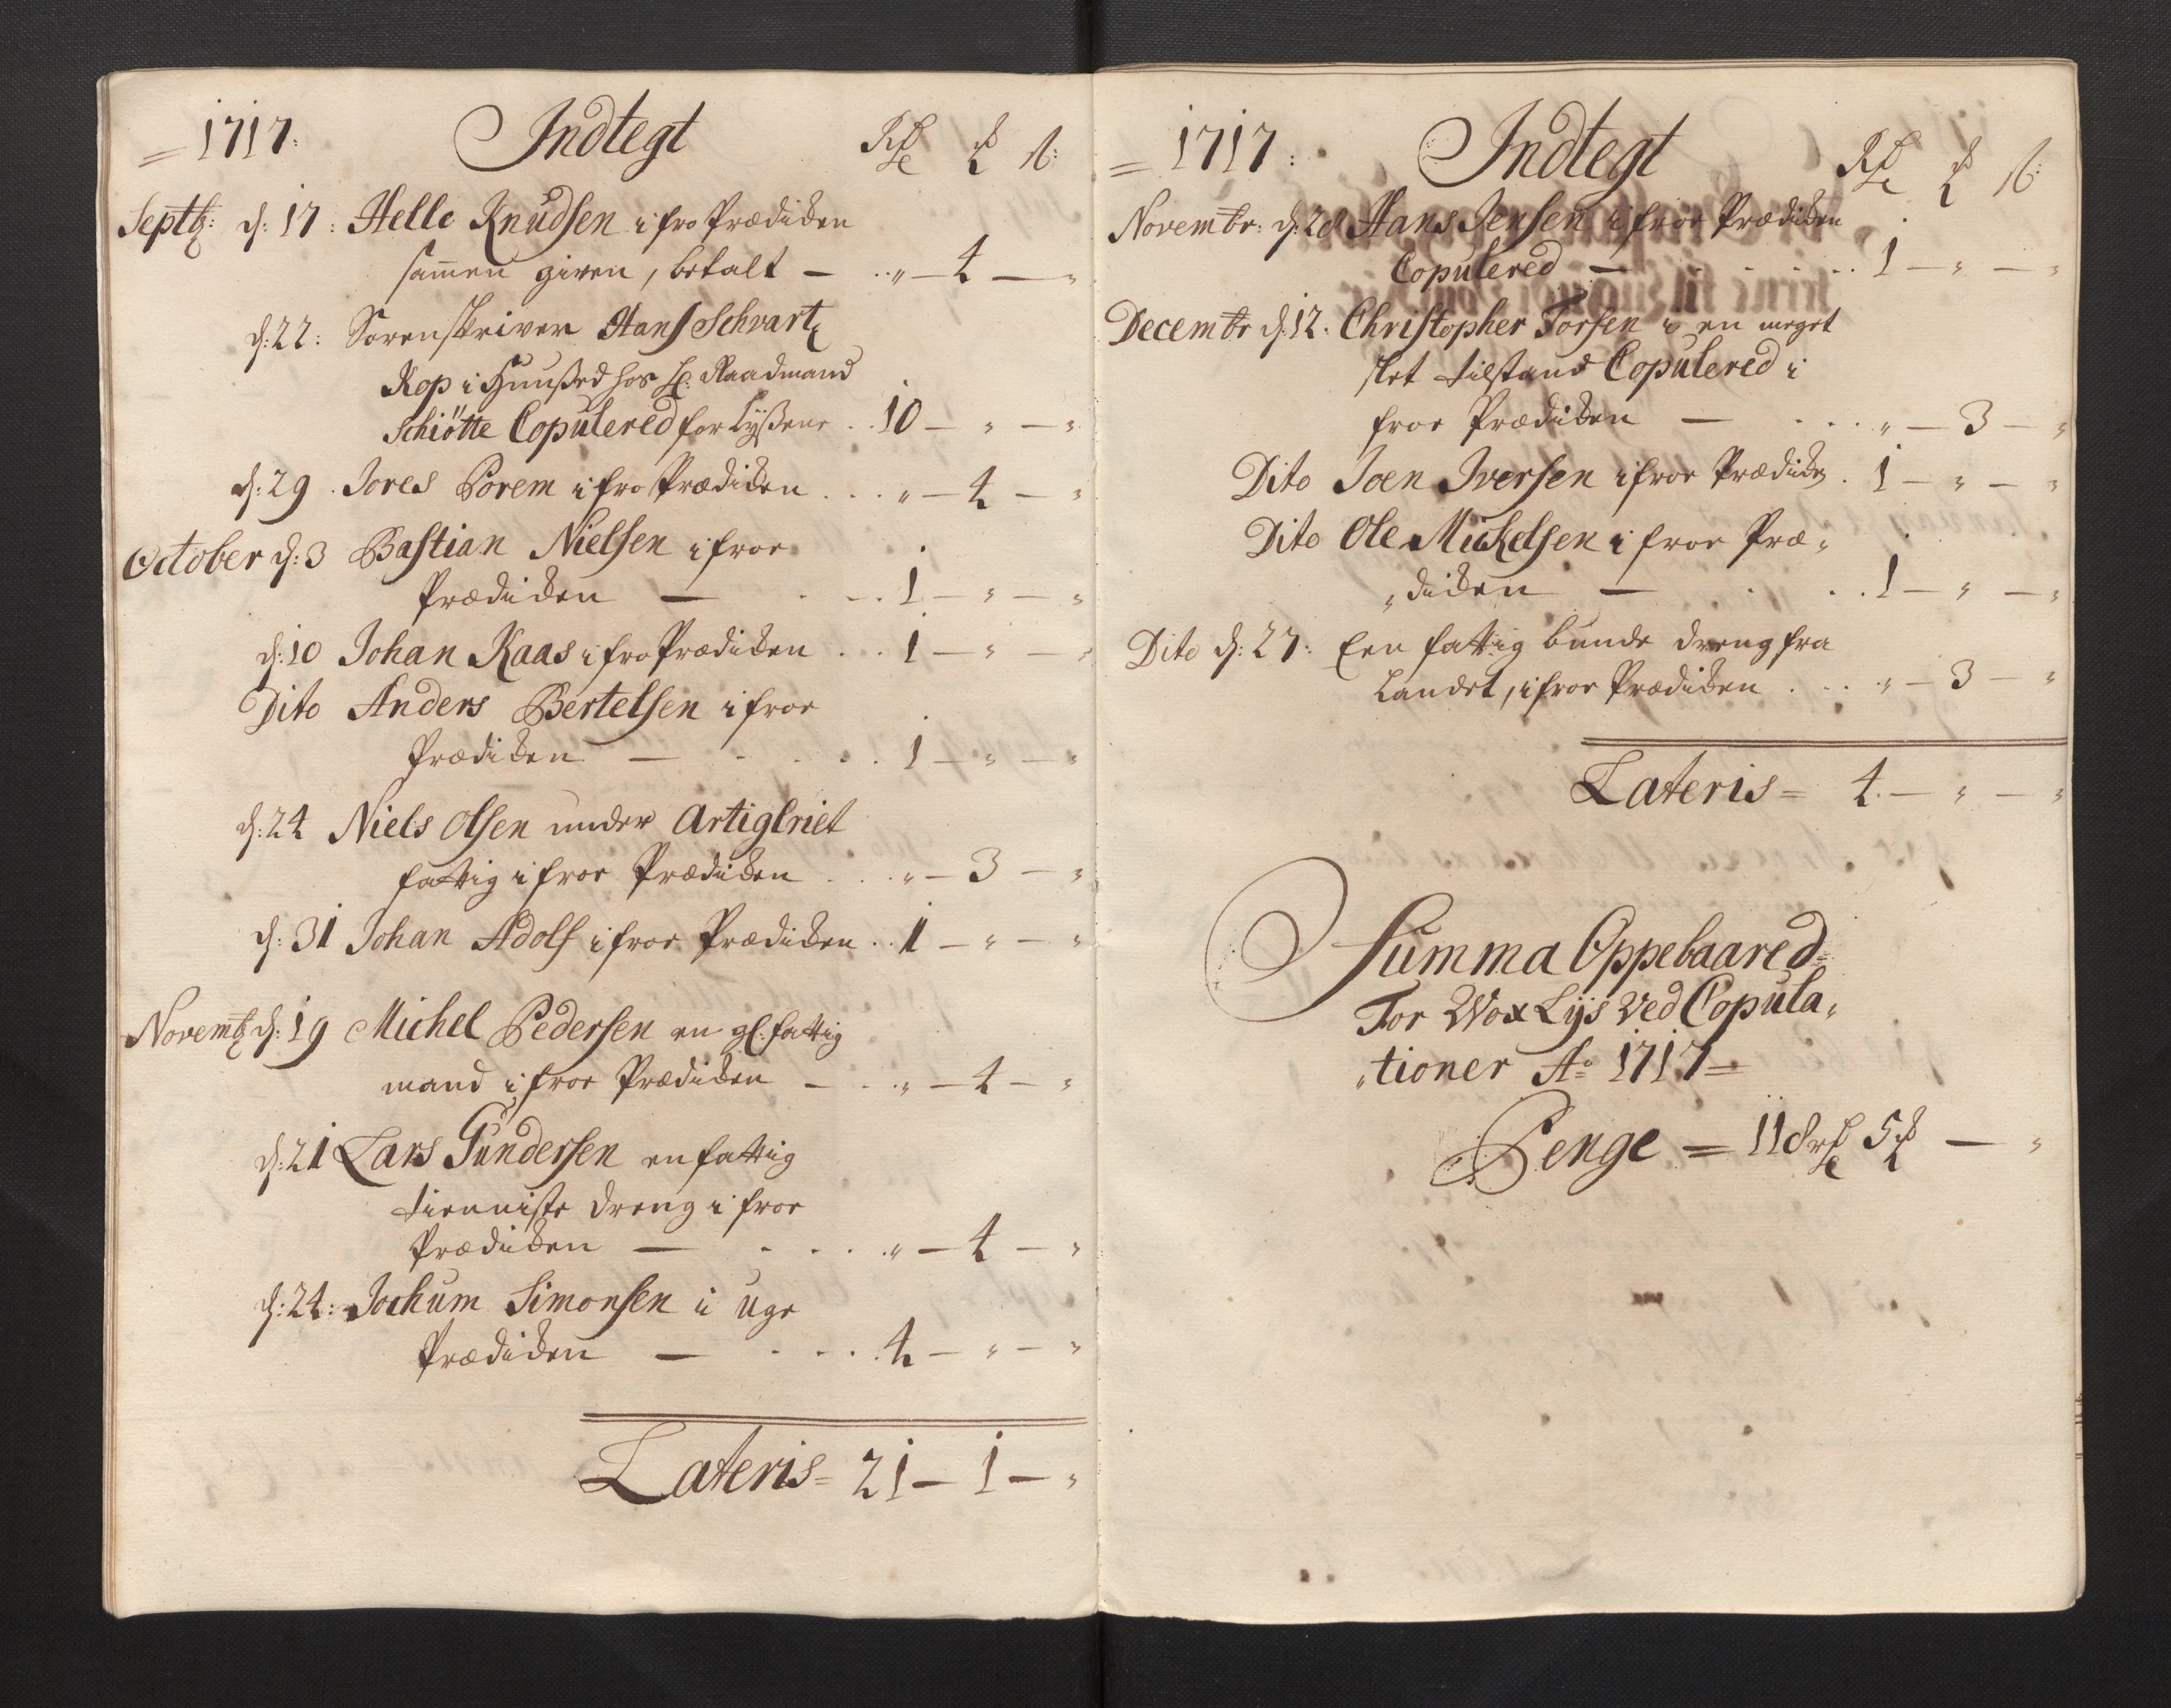 1717: Indtegt Rdr mk s:
Septb: d: 17: Helle Knudsen i fro Prædiken
sammen given, betalt — .. " — 4 — "
d: 22: Sorenskriver Hans Schvartz
Kop i Huused hos H: Raadmand
Schiötte Copulered for Lyßene . . 10 — " — "
d: 29. Jores Porem i fro Prædiken . . . " — 4 — "
October d: 3 Bastian Nielsen i froe
Prædiken — . . . 1 — " — "
d: 10 Johan Kaas i fro Prædiken . . . 1 — " — "
Dito Anders Bertelsen i froe
Prædiken — . . . . 1 — " — "
d: 24 Niels Olsen under Artiglriet
fattig i froe Prædiken . . . " — 3 — "
d: 31 Johan Adolf i froe Prædiken . . 1 — " — "
Novembr d: 19 Michel Pedersen en gl. fattig
mand i froe Prædiken — . . " — 4 — "
d: 21 Lars Gundersen en fattig
tienniste dreng i froe
Prædiken — . . . . " — 4 — "
d: 24: Jochum Simonsen i Uge
Prædiken — . . . . 4 — " — "
Lateris = 21 — 1 — "
1717: Indtegt Rdr mk s:
Novembr: d: 28 Hans Jensen i froe Prædiken
Copulered — . . . . . 1 — " — "
Decembr d: 12: Christopher Torsen i en meget
slet tilstand Copulered i
froe Prædiken — . . . " — 3 — "
Dito Joen Iversen i froe Prædiken . 1 — " — "
Dito Ole Mickelsen i froe Præ-
diken — . . . 1 — " — "
Dito d: 27: Een fattig bunde dreng fra
Landet, i froe Prædiken . . . " — 3 — "
Lateris = 4 — " — "
Summa Oppebaared
For Wox Lys Ved Copula-
tioner Ao 1717
Penge = 118 rdr 5 mk — "